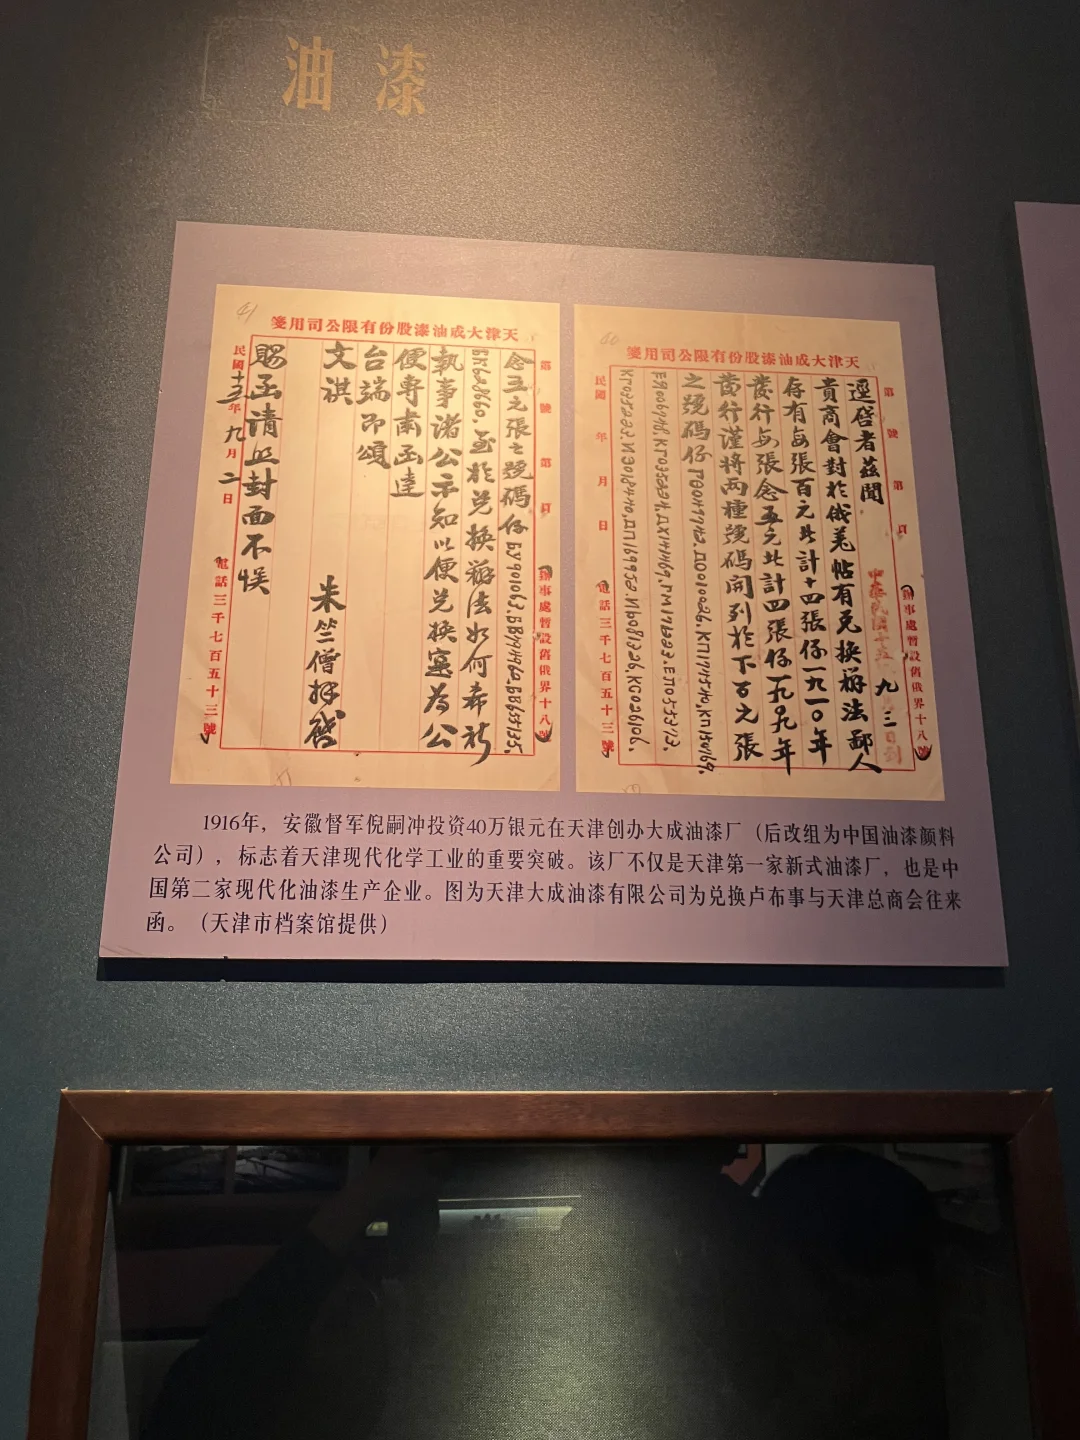 油漆
天津大成油漆股份有限公司用箋
第 號 第 頁 辦事處暫設舊俄界十八號
九 三
逕啓者茲聞
貴商會對於俄羌帖有兌換辦法鄙人
存有每張百元此計十四張係一九一〇年
發行每張念五元此計四張係一九〇九年
發行謹將兩種號碼開列於下百元張
之號碼係
民國 年 月 日 電話三千七百五十三號
41
天津大成油漆股份有限公司用箋
第 號 第 頁 辦事處暫設舊俄界十八號
念五元張之號碼係
至於兌換辦法如何希祈
執事諸公示知以便兌換寔為公
便專肅函達
台端即頌
文祺
朱竺僧拜啓
賜函請照封面不悞
民國十五年九月二日 電話三千七百五十三號
1916年，安徽督军倪嗣冲投资40万银元在天津创办大成油漆厂（后改组为中国油漆颜料
公司），标志着天津现代化学工业的重要突破。该厂不仅是天津第一家新式油漆厂，也是中
国第二家现代化油漆生产企业。图为天津大成油漆有限公司为兑换卢布事与天津总商会往来
函。（天津市档案馆提供）